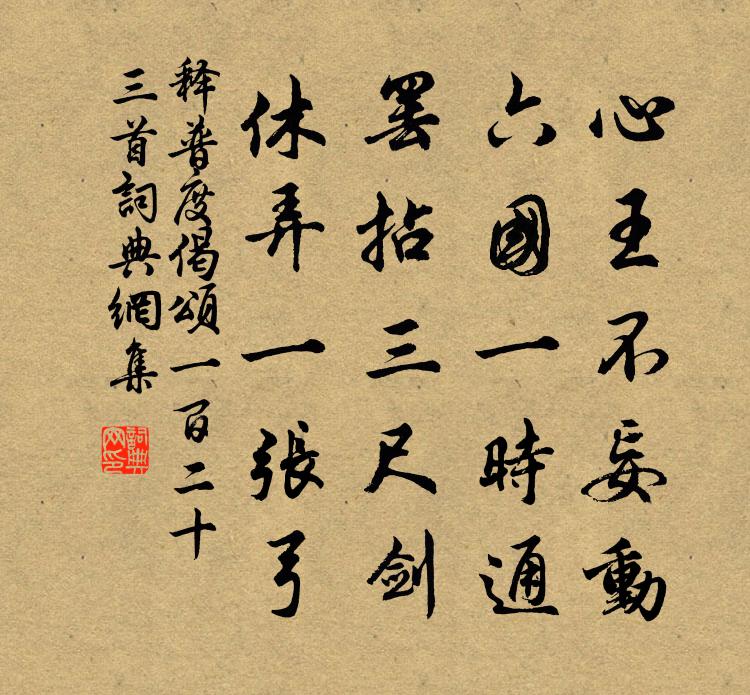 心王不妄動
六國一時通
罢拈三尺劍
休弄一張弓
释普度偈頌一百二十
三首詞典網集
詞典
网印